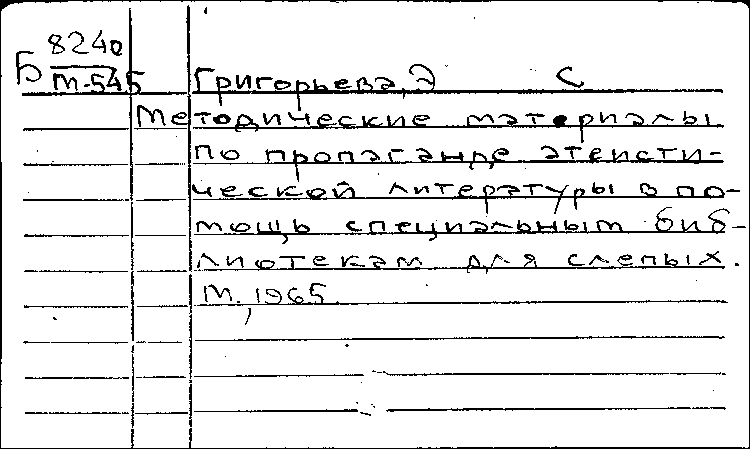 Б 8240
М-545 Григорьева, Э С
Методические материалы
по пропаганде атеисти-
ческой литературы в по-
мощь специальным биб-
лиотекам для слепых.
М., 1965